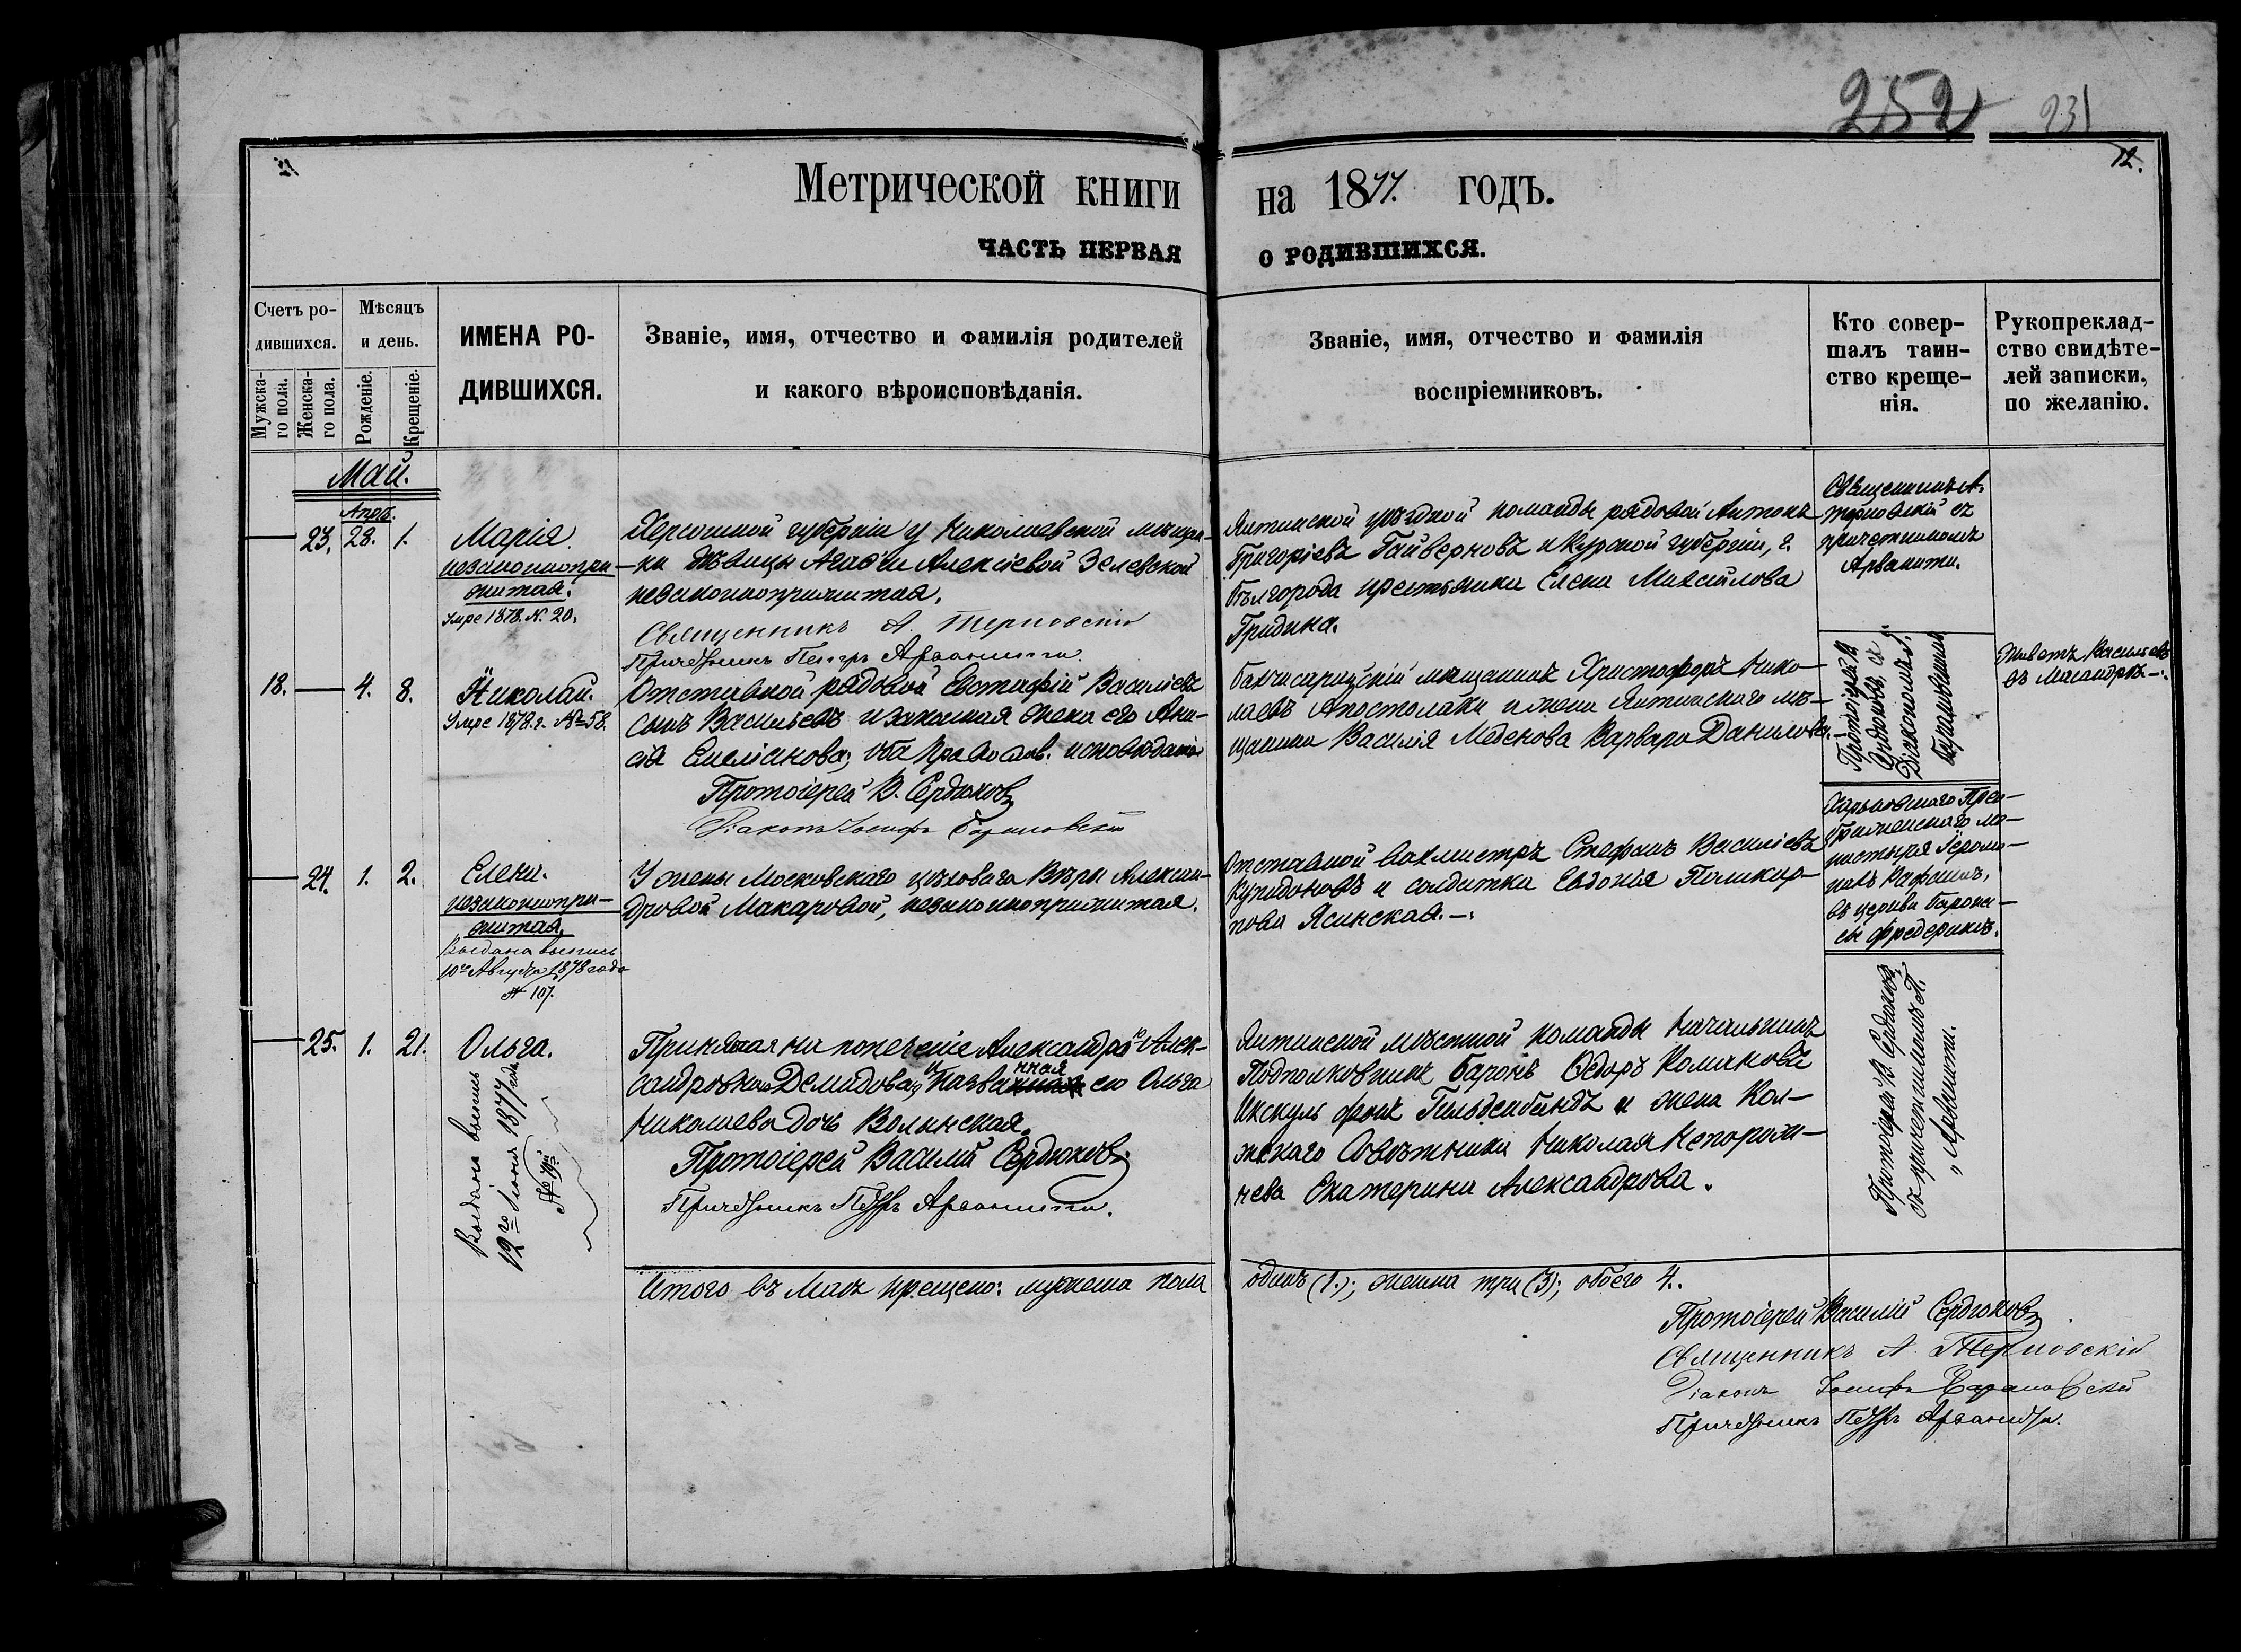 252 231
12.
Метрической книги на 1877. годъ.
ЧАСТЬ ПЕРВАЯ О РОДИВШИХСЯ.
Счетъ ро-
дившихся.
Мужска-
го пола.
Женска-
го пола.
Мѣсяцъ
и день.
Рожденіе.
Крещеніе.
ИМЕНА РО-
ДИВШИХСЯ.
Званіе, имя, отчество и фамилія родителей
и какого вѣроисповѣданія.
Званіе, имя, отчество и фамилія
воспріемниковъ.
Кто совер-
шалъ таин-
ство креще-
нія.
Рукоприклад-
ство свидѣте-
лей записки,
по желанію.
Май.
Апрѣ.
23. 28. 1.
Марія.
незаконнопри-
житая.
Умре 1878. № 20.
Херсонской губерніи г. Николаевской мѣщан-
ки дѣвицы Агафіи Алексіевой Зелевской
незаконноприжитая.
Священникъ А. Терновскій
Причетникъ Петръ Арванити.
Ялтинской уѣздной команды рядовой Антонъ
Григоріевъ Гайверновъ и Курской губерніи, г.
Бѣлгорода крестьянка Елена Михайлова
Гридина.
Священникъ А.
Терновскій съ
причетникомъ
Арванити.
18. 4. 8.
Николай.
Умре 1878 г. № 58.
Отставной рядовой Евстафій Василіевъ
сынъ Васильевъ и законная жена его Ани-
сія Емеліанова, оба православ. исповѣданія
Протоіерей В. Сердюковъ
Діаконъ Іосифъ Барановскій
Бахчисарайскій мѣщанинъ Христофоръ Нико-
лаевъ Апостолаки и жена Ялтинскаго мѣ-
щанина Василія Меденова Варвара Данилова.
Протоіерей В.
Сердюковъ, съ
Діакономъ І.
Барановскимъ
Живетъ Васильевъ
въ Масандрѣ.
24. 1. 2.
Елена.
незаконнопри-
житая.
Выдана выпись
10го Августа 1878 года
№ 107.
У жены Московскаго цѣховаго Вѣры Алексан-
дровой Макаровой, незаконноприжитая.
Отставной вахмистръ Стефанъ Василіевъ
Купидоновъ и солдатка Евдокія Поликар-
пова Ясинская.
Харьковскаго Прео-
браженскаго мо-
настыря Іеромо-
нахъ Рафаилъ,
въ церкви Баронес-
сы Фредериксъ.
25. 1. 21.
Ольга.
Выдана выпись
12го Іюня 1877 года
Принятая на попеченіе Александрою Алек-
сандровною Демидовою, и названная ею Ольга
Николаева дочь Волынская.
Протоіерей Василій Сердюковъ
Причетникъ Петръ Арванити.
Ялтинской мѣстной команды Начальникъ
Подполковникъ Баронъ Ѳедоръ
Икскуль фонъ Гильденбандъ и жена Кол-
жскаго Совѣтника Николая Непорож-
нева Екатерина Александрова.
Протоіерей В. Сердюковъ,
съ причетникомъ П.
Арванити.
Итого въ Маѣ крещено: мужеска пола одинъ (1.); женска три (3); обоего 4.
Протоіерей Василій Сердюковъ
Священникъ А. Терновскій
Діаконъ Іосифъ Барановскій
Причетникъ Петръ Арванити.